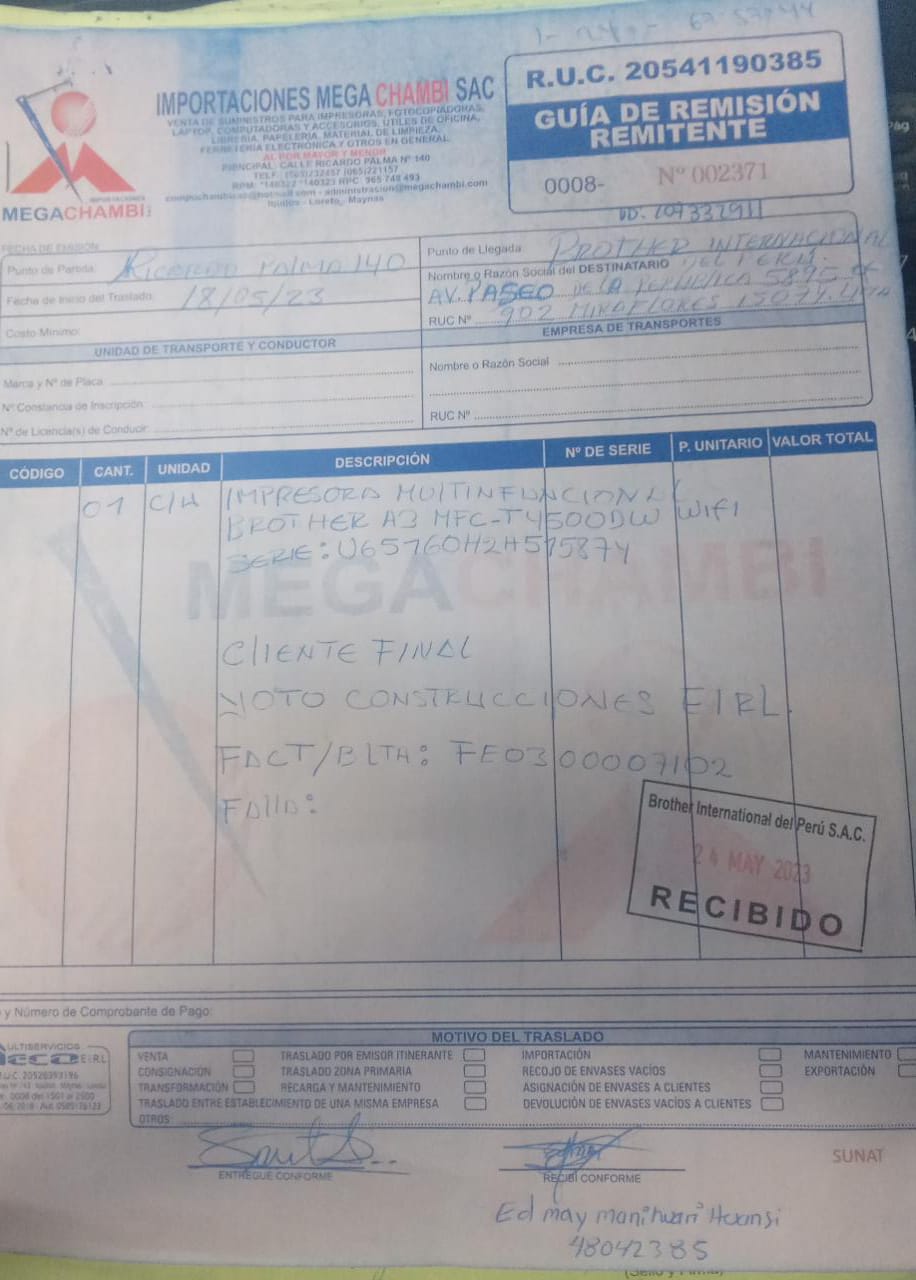 IMPORTACIONES MEGA CHAMBI SAC
VENTA DE SUMINISTROS PARA IMPRESORAS, FOTOCOPIADORAS,
LAPTOP, COMPUTADORAS Y ACCESORIOS, ÚTILES DE OFICINA,
LIBRERIA, PAPELERIA, MATERIAL DE LIMPIEZA,
FERRETERIA ELECTRONICA Y OTROS EN GENERAL.
AL POR MAYOR Y MENOR
PRINCIPAL: CALLE RICARDO PALMA Nº 140
TELF.: (065)232457 (065)221157
RPM: *140322 *140323 RPC: 965 748 493
administracion@megachambi.com
Iquitos - Loreto - Maynas
IMPORTACIONES
MEGACHAMBI
R.U.C. 20541190385
GUÍA DE REMISIÓN
REMITENTE
0008- Nº 002371
FECHA DE EMISIÓN:
Punto de Partida: RICARDO PALMA 140
Fecha de Inicio del Traslado: 18/05/23
Costo Mínimo:
Punto de Llegada: BROTHER INTERNACIONAL
Nombre o Razón Social del DESTINATARIO DEL PERU.
AV. PASEO DE LA REPUBLICA 5895
RUC Nº 902 MIRAFLORES 15074
UNIDAD DE TRANSPORTE Y CONDUCTOR
Marca y Nº de Placa
Nº Constancia de Inscripción
Nº de Licencia(s) de Conducir:
EMPRESA DE TRANSPORTES
Nombre o Razón Social
RUC Nº
CÓDIGO CANT. UNIDAD DESCRIPCIÓN Nº DE SERIE P. UNITARIO VALOR TOTAL
01 C/U IMPRESORA MULTINFUNCIONAL
BROTHER A3 MFC-T4500DW WIFI
SERIE: U65760H2H575874
MEGACHAMBI
CLIENTE FINAL
CONSTRUCCIONES EIRL.
FACT/BLTA: FE0300007102
FALLA:
Brother International del Perú S.A.C.
24 MAY 2023
RECIBIDO
y Número de Comprobante de Pago:
MOTIVO DEL TRASLADO
VENTA
CONSIGNACIÓN
TRANSFORMACIÓN
TRASLADO ENTRE ESTABLECIMIENTO DE UNA MISMA EMPRESA
OTROS:
TRASLADO POR EMISOR ITINERANTE
TRASLADO ZONA PRIMARIA
RECARGA Y MANTENIMIENTO
IMPORTACIÓN
RECOJO DE ENVASES VACÍOS
ASIGNACIÓN DE ENVASES A CLIENTES
DEVOLUCIÓN DE ENVASES VACÍOS A CLIENTES
MANTENIMIENTO
EXPORTACIÓN
ENTREGUE CONFORME
RECIBÍ CONFORME
SUNAT
Ed may manihuari Huansi
48042385